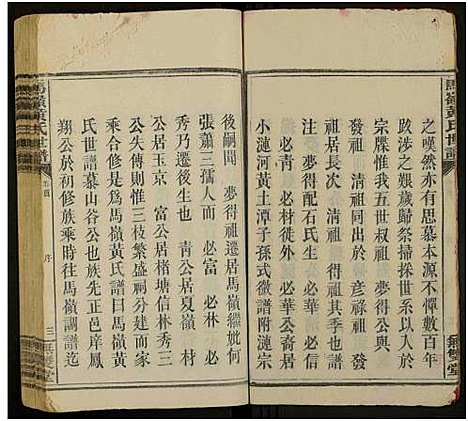 馬嶺黃氏世譜
之嘆然亦有思慕本源不憚數百年
跋涉之艱歲歸祭掃探世系以入於
宗牒惟我五世叔祖　清祖　發
祖同出於　彥祿祖　發
祖居長次　清祖　得祖其季也譜
得祖夢得配石氏生　必華　必信
必青　必材徙外　必華公裔居
小漣河黃土潭子孫式微譜附漣宗
無雙堂
後嗣闕　夢得祖遷居馬嶺繼妣何
張蕭三孺人而　必富　必林　必
秀乃遷後生也　青公居夏嶺　材
公居玉京　富公居格塘信林秀三
公失傳則惟三枝繁盛祠分建而家
乘合修是為馬嶺黃氏譜曰馬嶺黃
氏世譜慕山谷公也族先正邑庠鳳
翔公於初修族乘時往馬嶺調譜迄
馬嶺黃氏世譜
卷首
序
三
無雙堂